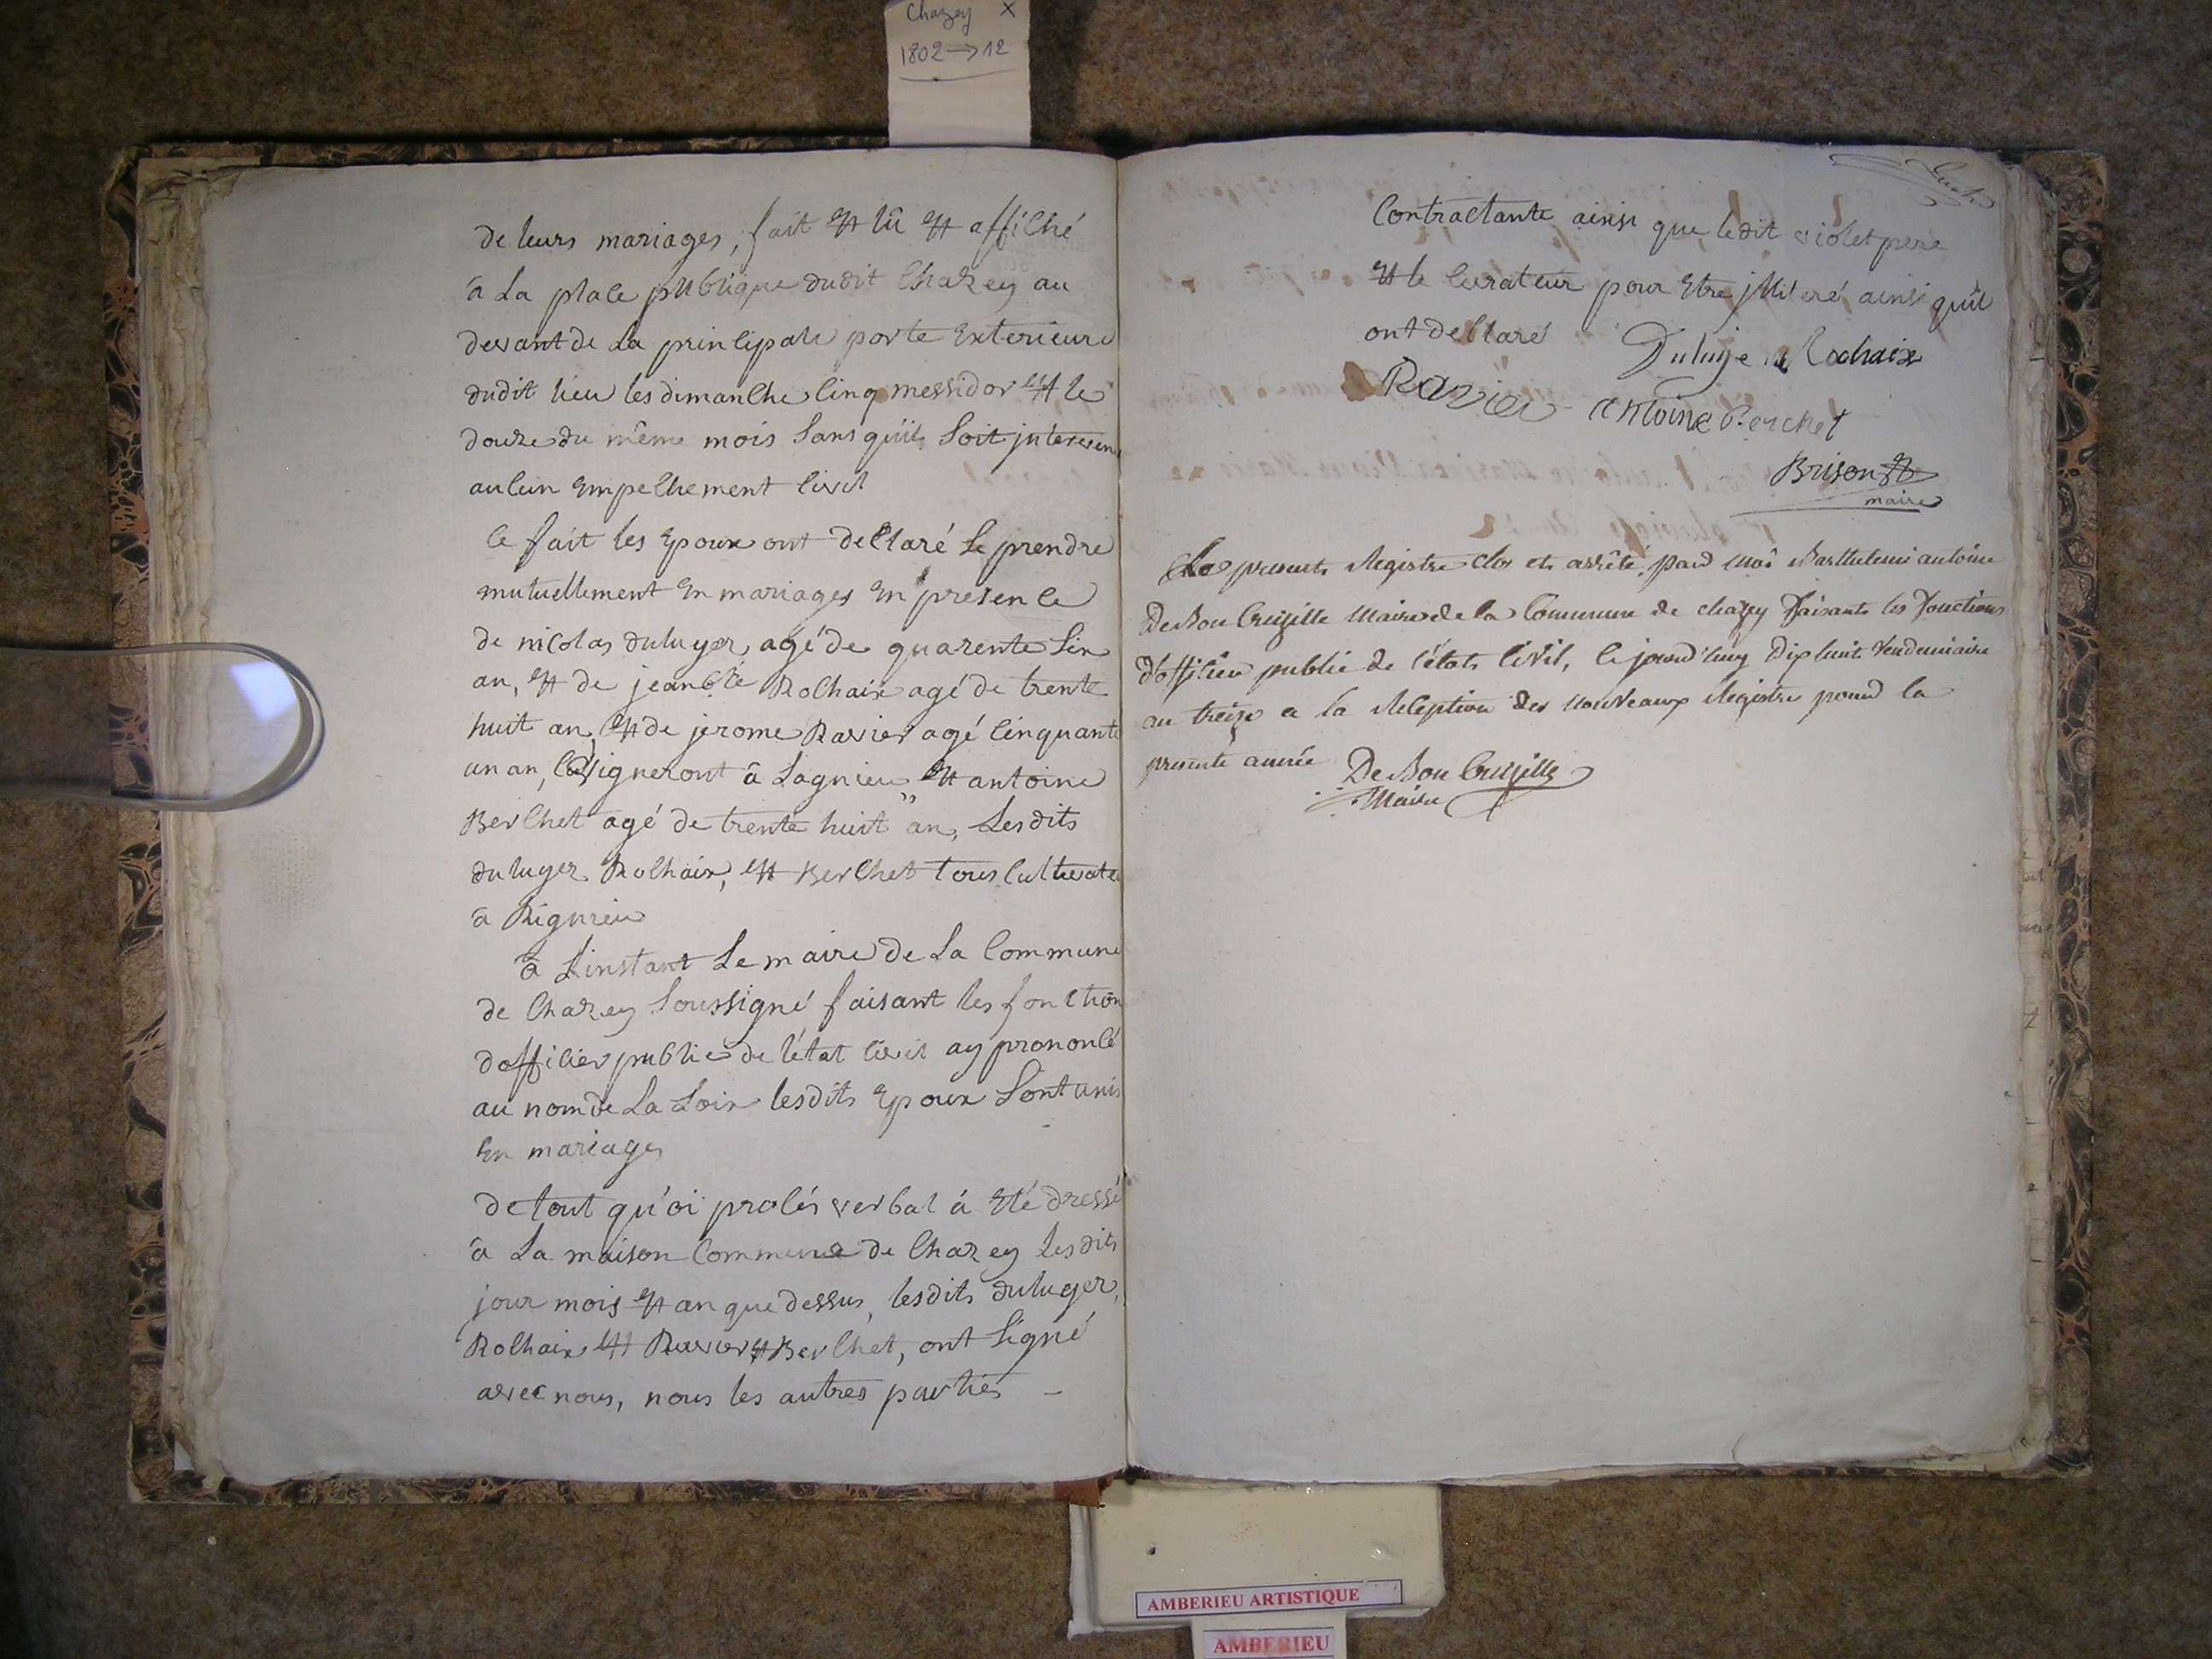 Chazey X
1802 → 12
de leurs mariages, fait et lû et affiché
à La place publique dudit Chazey au
devant de La principale porte Exterieure
dudit lieu les dimanche cinq messidor et le
douze du même mois Sans qu'il Soit interven
aucun Empechement civil
Ce fait les Epoux ont declaré Se prendre
mutuellement En mariages En presence
de nicolas duluyer, agé de quarente Six
an, et de jean Bte Rochaix agé de trente
huit an, et de jerome Ravier agé cinquante
un an, Signeront à Lagnieu, et antoine
Berchet agé de trente huit an, Lesdits
duluyer Rochaix, et Berchet tous Cultivate
à Rignieu
à Linstant Le maire de La Commune
de Chazey Soussigné faisant les fonction
d'officier public de l'état civil ay prononcé
au nom de La Loix lesdits Epoux Sont unis
En mariages
de tout qu'oi procés verbal à Eté dressé
à La maison Commune de Chazey Lesdits
jour mois et an que dessus, lesdits duluyer,
Rochaix et Ravier et Berchet, ont Signé
avec nous, nous les autres parties –
Contractante ainsi que ledit violet pere
et le Curateur pour Etre jlliteré ainsi qu'il
ont declaré Duluye Rochaix
Ravier antoine Berchet
Brison
maire
Le present Registre Clos et arrêté par moi Barthelemi antoine
De Bon Cruzille Maire de la Commune de chazey Faisant les Fonctions
d'officier public de l'état Civil, le jourd'huy Dix huit Vendemiaire
an treize a la Reception des nouveaux Registre pour la
presente année De Bon Cruzille
Maire
AMBERIEU ARTISTIQUE
AMBERIEU